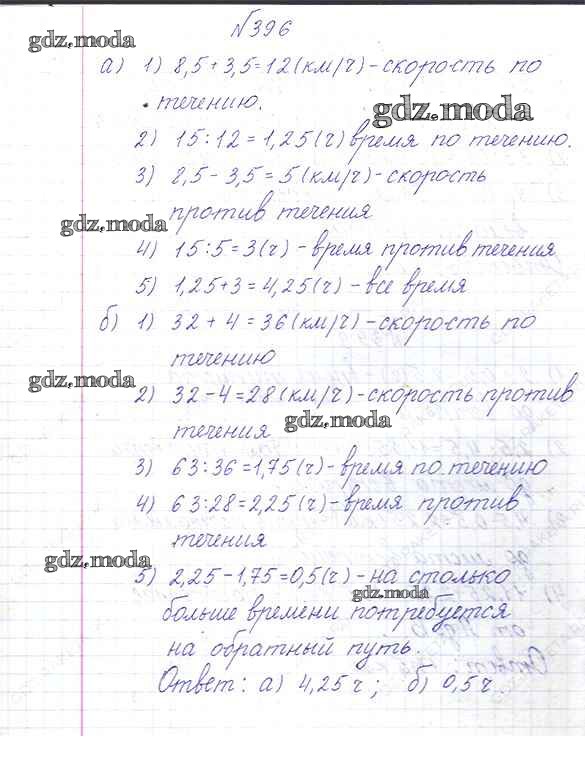 №396
gdz.moda
а) 1) 8,5 + 3,5 = 12 (км/ч) - скорость по
течению.
gdz.moda
2) 15 : 12 = 1,25 (ч) время по течению.
3) 8,5 - 3,5 = 5 (км/ч) - скорость
против течения
gdz.moda
4) 15 : 5 = 3 (ч) - время против течения
5) 1,25 + 3 = 4,25 (ч) - все время
б) 1) 32 + 4 = 36 (км/ч) - скорость по
течению
gdz.moda
2) 32 - 4 = 28 (км/ч) - скорость против
течения
gdz.moda
3) 63 : 36 = 1,75 (ч) - время по течению
4) 63 : 28 = 2,25 (ч) - время против
течения
gdz.moda
5) 2,25 - 1,75 = 0,5 (ч) - на столько
gdz.moda
больше времени потребуется
на обратный путь.
Ответ: а) 4,25 ч; б) 0,5 ч.